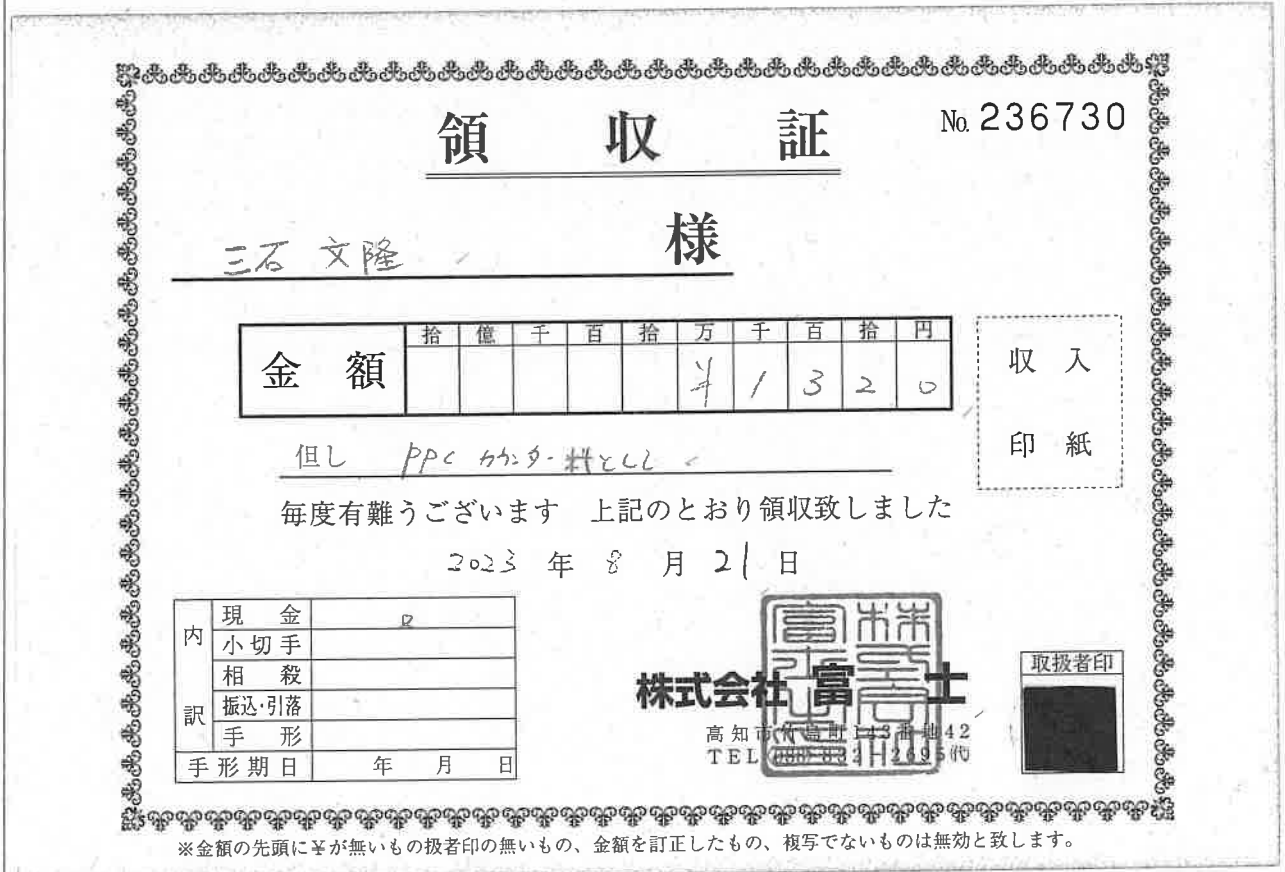 領収証
No. 236730
三石 文隆 様
拾 億 千 百 拾 万 千 百 拾 円
金額 ¥1320
収入
印紙
但し PPC カウンター料として
毎度有難うございます 上記のとおり領収致しました
2023 年 8 月 21 日
内訳
現金
小切手
相殺
振込・引落
手形
手形期日 年 月 日
株式会社 富士
高知市竹島町143番地42
TEL (088) 832-2695㈹
取扱者印
※金額の先頭に¥が無いもの扱者印の無いもの、金額を訂正したもの、複写でないものは無効と致します。